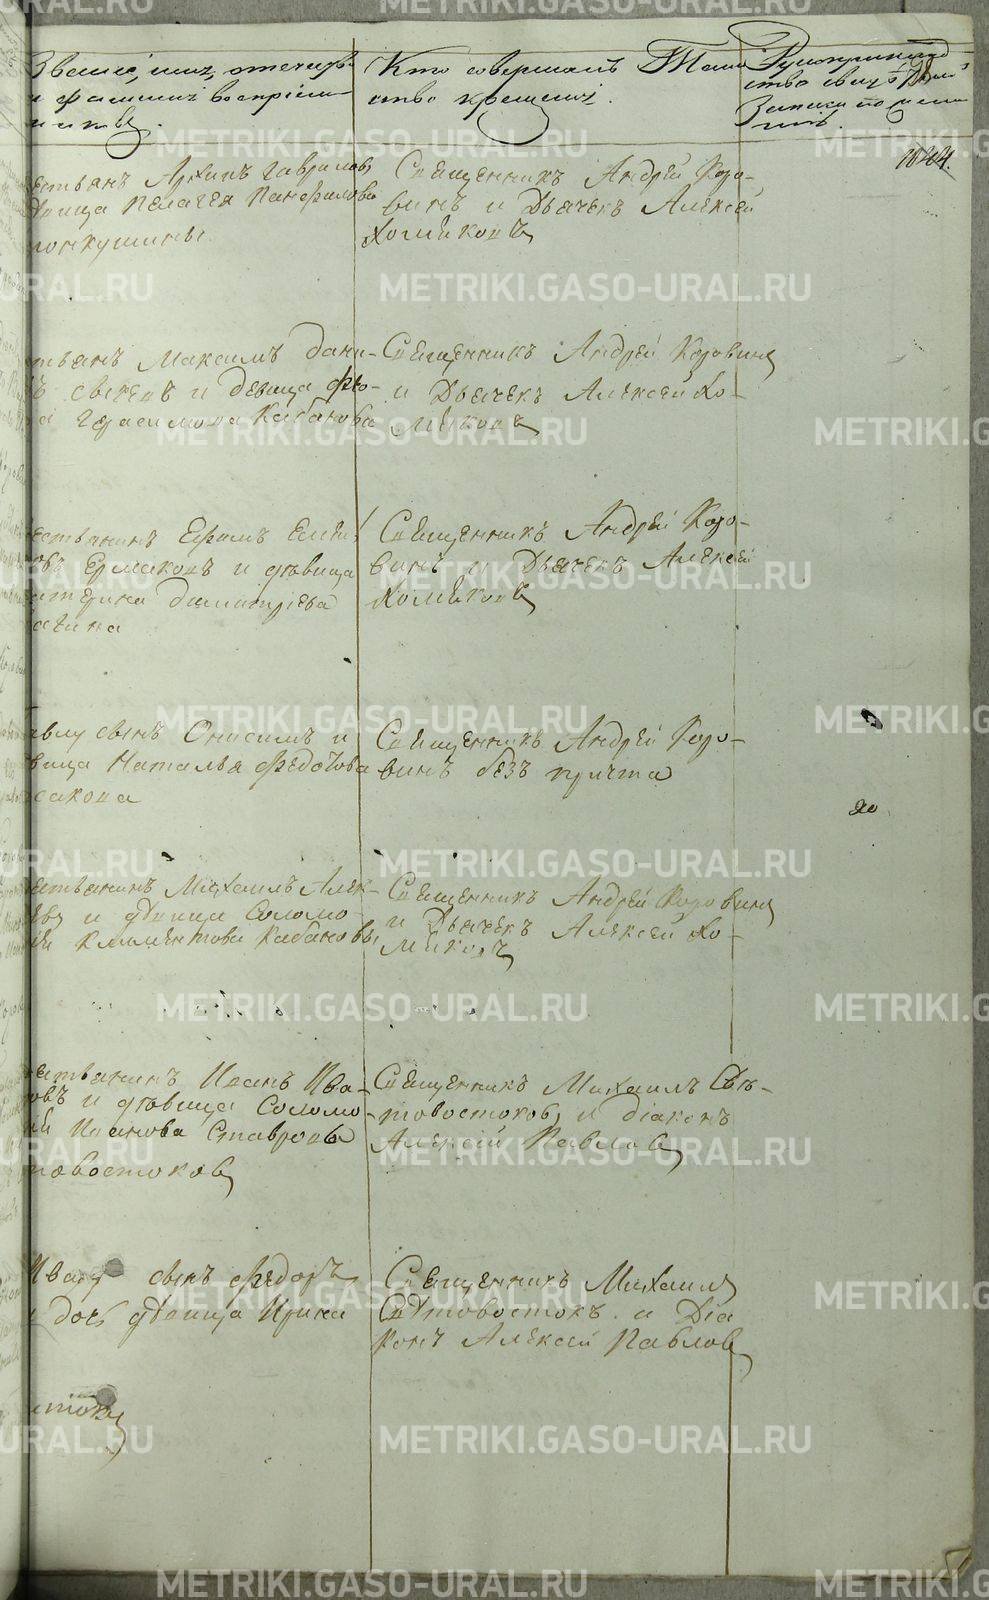 Званіе, имя, отечество
и фамилія воспріем-
никовъ.
Кто совершалъ Таин-
ство крещенія.
Рукоприкладст
ство свидѣтелей
Записи по желанію
1844.
естьянъ Архипъ Гавриловъ
дѣвица Пелагея Панфилова
Священникъ Андрей Коро-
винъ и Дьячекъ Алексей
Хомяковъ
тьянъ Максимъ Дани-
съ сыномъ и девица Фео-
Герасимова Кабанова
Священникъ Андрей Коровинъ
и Дьячекъ Алексей Хо-
мяковъ
естьянинъ Ефимъ Емел
въ Ермаковъ и дѣвица
атерина Димитріева
Священникъ Андрей Коро-
винъ и Дьячекъ Алексей
Хомяковъ
сынъ Онисимъ и
вица Наталья Федотова
сакова
Священникъ Андрей Коро-
винъ безъ причта
естьянинъ Михаилъ Алек-
евъ и дѣвица Соломо-
Климентова Кабановы
Священникъ Андрей Коровинъ
и Дьячекъ Алексей Хо-
мяковъ
естьянинъ Иванъ Ива-
новъ и дѣвица Соломо-
Иванова Ставрова
товостоковъ
Священникъ Михаилъ Свѣ-
товостоковъ и діаконъ
Алексей Павловъ
Ивану сынъ Федоръ
и дочь дѣвица Ирина
Священникъ Михаилъ
Свѣтовостоковъ и Діа
конъ Алексей Павловъ
METRIKI.GASO-URAL.RU